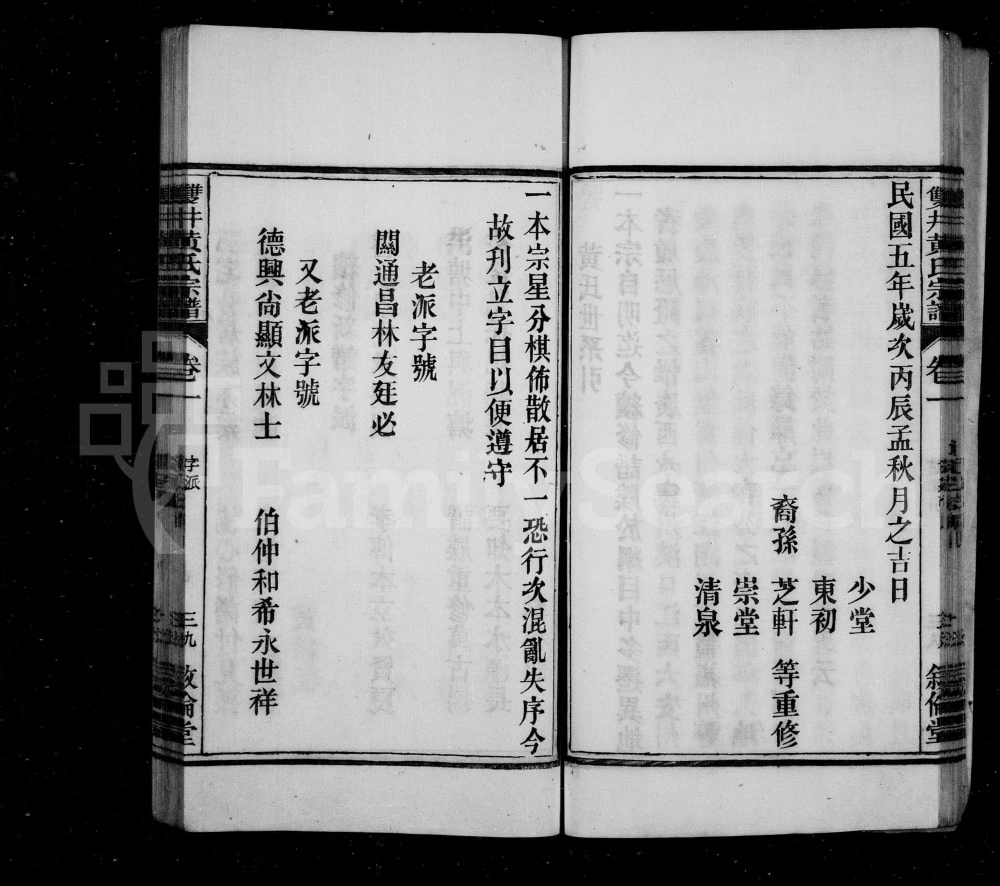 雙井黃氏宗譜 卷一
敘倫堂
民國五年歲次丙辰孟秋月之吉日
少堂
東初
裔孫 芝軒 等重修
崇堂
清泉
一本宗星分棋佈散居不一恐行次混亂失序今
故刋立字目以便遵守
老派字號
闗通昌林友廷必
又老派字號
德興尙顯文林士 伯仲和希永世祥
雙井黃氏宗譜 卷一 字派 三九 敘倫堂
FamilySearch